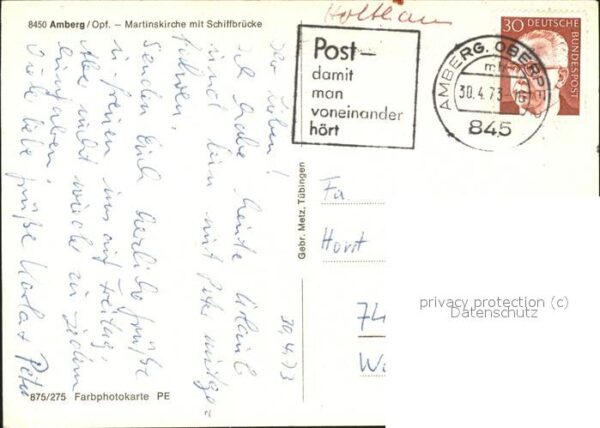 8450 Amberg/Opf. – Martinskirche mit Schiffbrücke
Post –
damit
man
voneinander
hört
30
DEUTSCHE
BUNDESPOST
AMBERG, OBERPF
30.4.73
845
Ihr Lieben!
Ich habe heute Urlaub
und bin mit Peter mitge=
fahren.
Senden Euch herzliche Grüße
u. freuen uns auf Freitag.
Aber nicht wieder zu jedem
Viele liebe Grüße Karla + Peter
30.4.73
Gebr. Metz, Tübingen
Fa.
Horst
74
Wi
privacy protection (c)
Datenschutz
875/275 Farbphotokarte PE